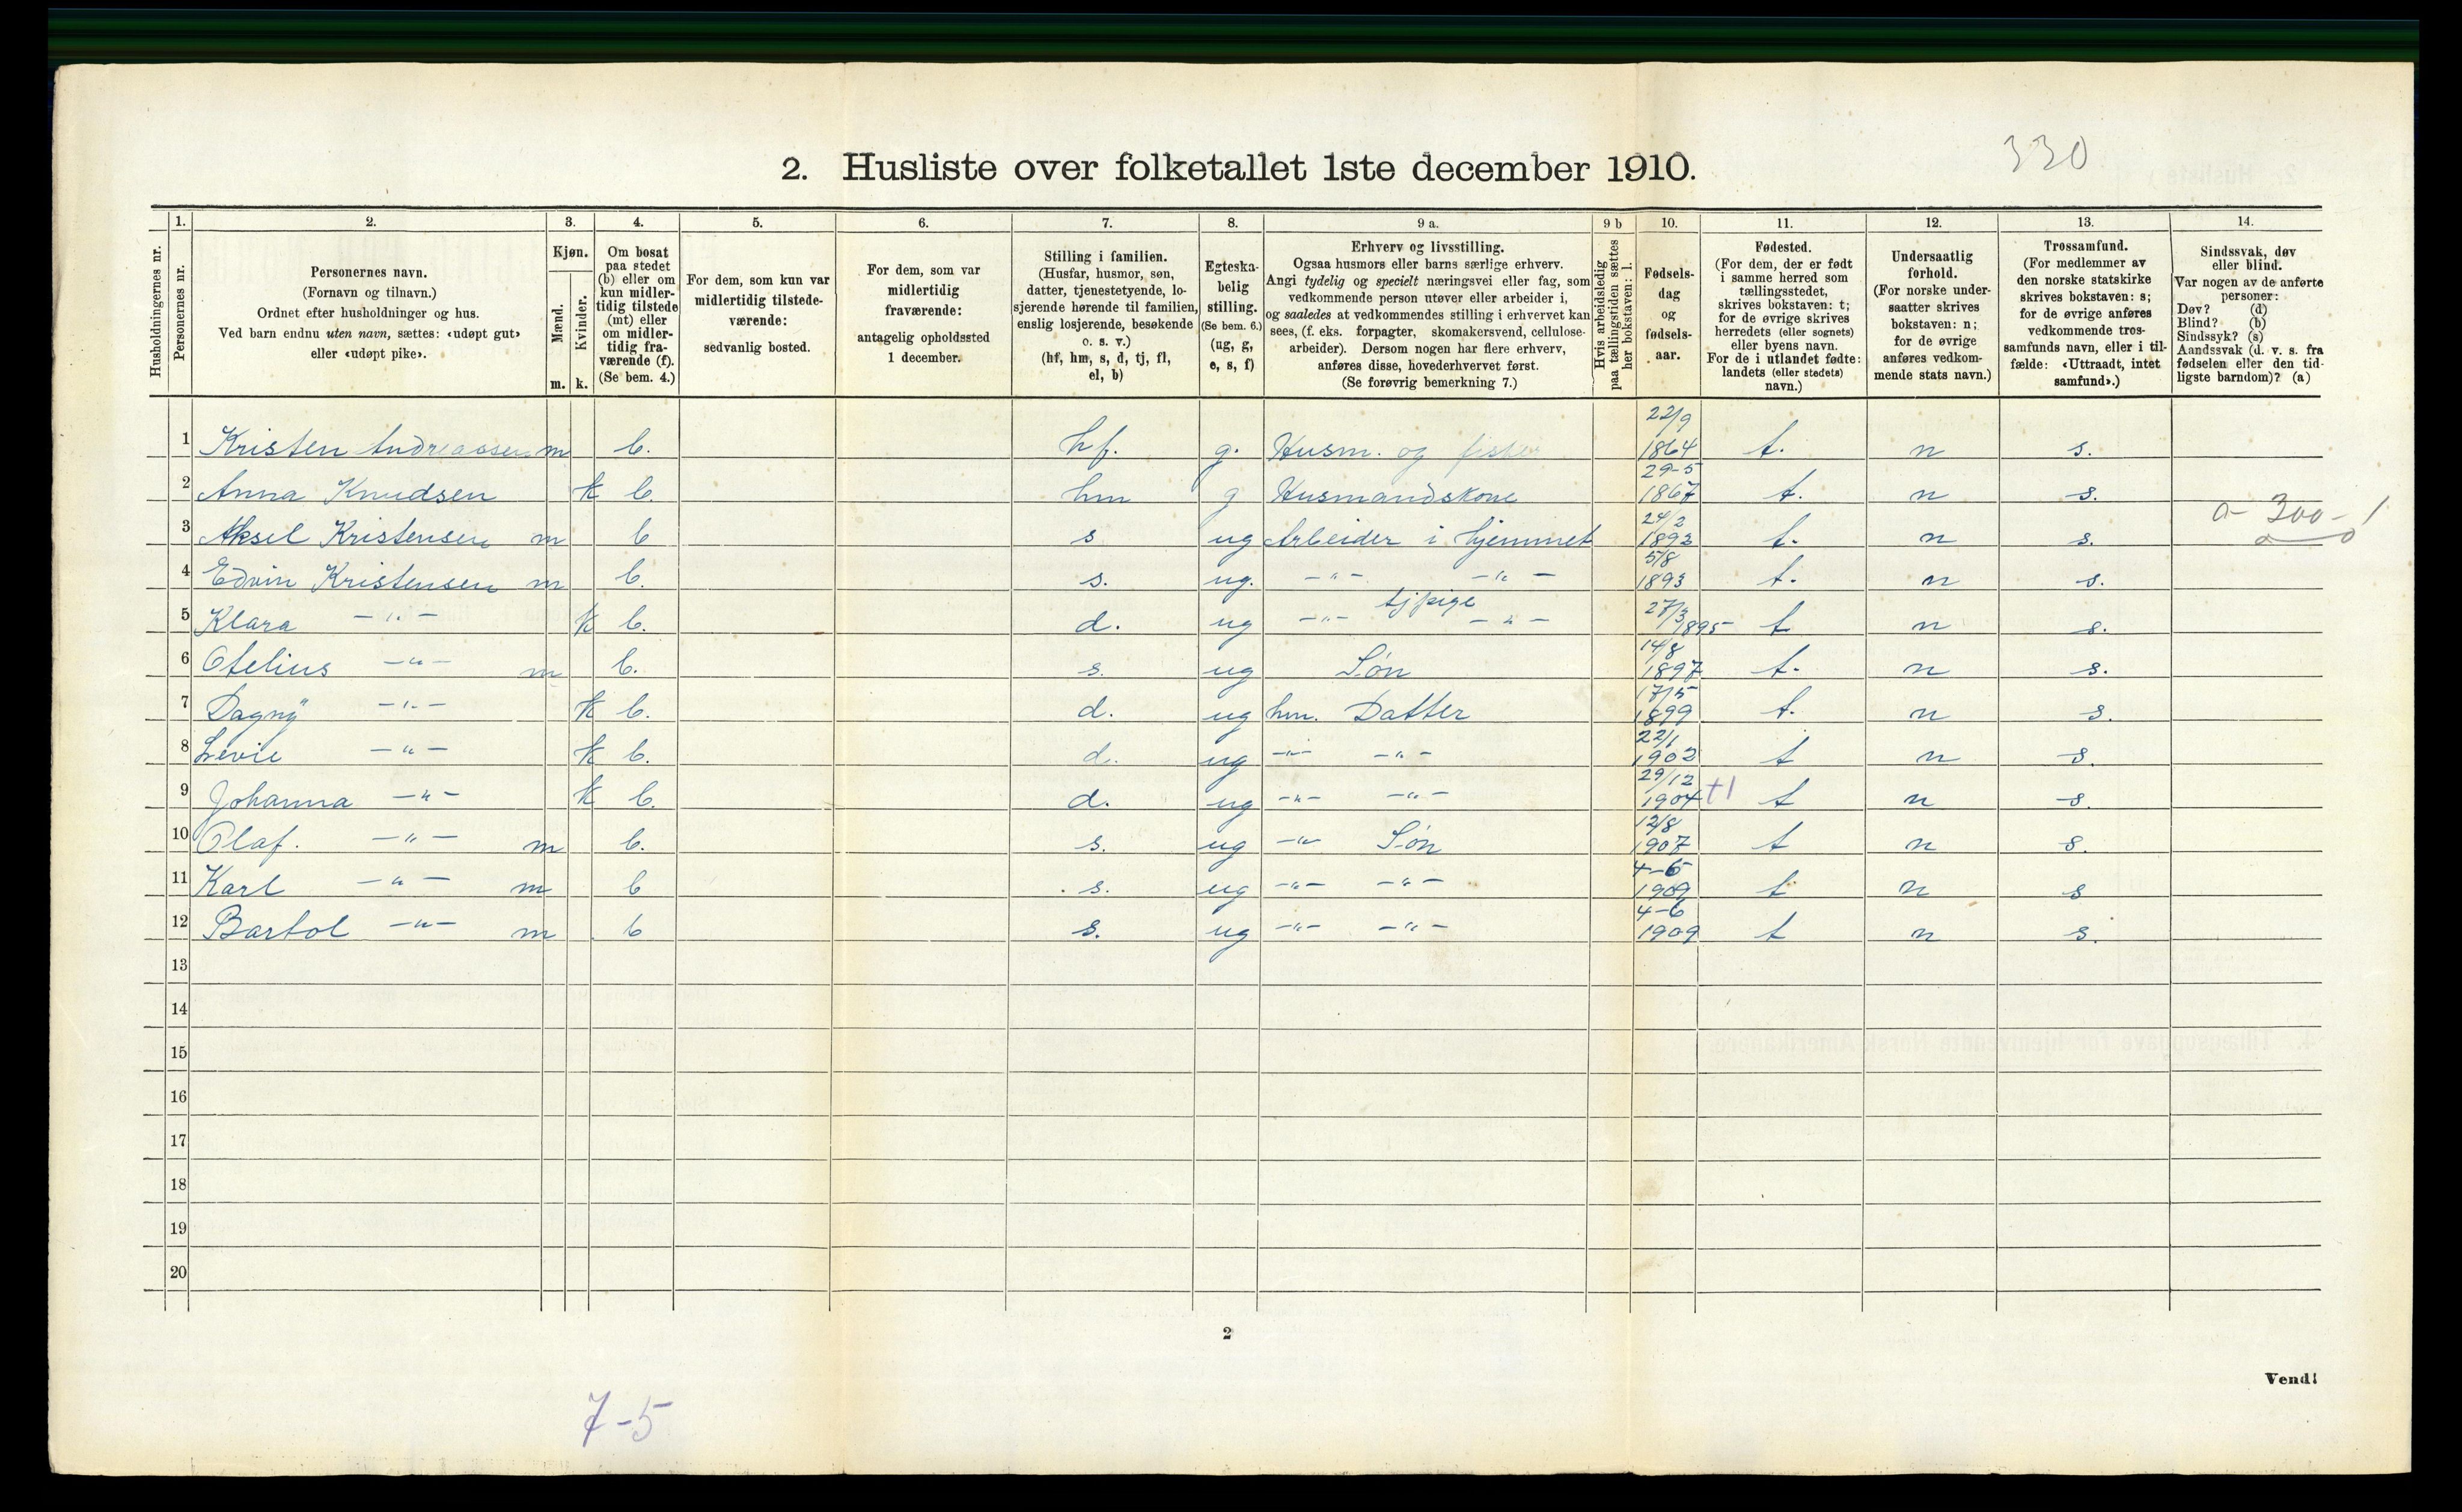 330
2. Husliste over folketallet 1ste december 1910.
1. 2. 3. 4. 5. 6. 7. 8. 9 a. 9 b 10. 11. 12. 13. 14.
Husholdningernes nr.
Personernes nr.
Personernes navn.
(Fornavn og tilnavn.)
Ordnet efter husholdninger og hus.
Ved barn endnu uten navn, sættes: «udøpt gut»
eller «udøpt pike».
Kjøn.
Mænd.
Kvinder.
m. k.
Om bosat
paa stedet
(b) eller om
kun midler-
tidig tilstede
(mt) eller
om midler-
tidig fra-
værende (f).
(Se bem. 4.)
For dem, som kun var
midlertidig tilstede-
værende:
sedvanlig bosted.
For dem, som var
midlertidig
fraværende:
antagelig opholdssted
1 december.
Stilling i familien.
(Husfar, husmor, søn,
datter, tjenestetyende, lo-
sjerende hørende til familien,
enslig losjerende, besøkende
o. s. v.)
(hf, hm, s, d, tj, fl,
el, b)
Egteska-
belig
stilling.
(Se bem. 6.)
(ug, g,
e, s, f)
Erhverv og livsstilling.
Ogsaa husmors eller barns særlige erhverv.
Angi tydelig og specielt næringsvei eller fag, som
vedkommende person utøver eller arbeider i,
og saaledes at vedkommendes stilling i erhvervet kan
sees, (f. eks. forpagter, skomakersvend, cellulose-
arbeider). Dersom nogen har flere erhverv,
anføres disse, hovederhvervet først.
(Se forøvrig bemerkning 7.)
Hvis arbeidsledig
paa tællingstiden sættes
her bokstaven: l.
Fødsels-
dag
og
fødsels-
aar.
Fødested.
(For dem, der er født
i samme herred som
tællingsstedet,
skrives bokstaven: t;
for de øvrige skrives
herredets (eller sognets)
eller byens navn.
For de i utlandet fødte:
landets (eller stedets)
navn.)
Undersaatlig
forhold.
(For norske under-
saatter skrives
bokstaven: n;
for de øvrige
anføres vedkom-
mende stats navn.)
Trossamfund.
(For medlemmer av
den norske statskirke
skrives bokstaven: s;
for de øvrige anføres
vedkommende tros-
samfunds navn, eller i til-
fælde: «Uttraadt, intet
samfund».)
Sindssvak, døv
eller blind.
Var nogen av de anførte
personer:
Døv? (d)
Blind? (b)
Sindssyk? (s)
Aandssvak (d. v. s. fra
fødselen eller den tid-
ligste barndom)? (a)
1 Kristen Andreassen m b. hf. g. Husm. og fisker 22/9 1864 t. n s.
2 Anna Knudsen k b hm g Husmandskone 29-5 1867 t. n s.
3 Aksel Kristensen m b s ug Arbeider i hjemmet 24/2 1892 t. n s. 0 - 300 - 1
4 Edvin Kristensen m b. s. ug. -"- -"- 5/8 1893 t. n s.
5 Klara -"- k b. d. ug -"- tjpige -"- 27/3 1895 t n s.
6 Otelius -"- m b. s. ug Søn 14/8 1897 t. n s.
7 Dagny -"- k b. d. ug hm. Datter 17/5 1899 t. n s.
8 Levie -"- k b. d. ug -"- -"- 22/1 1902 t n s.
9 Johanna -"- k b. d. ug -"- -"- 29/12 1904 t1 t n s.
10 Olaf. -"- m b. s. ug -"- Søn 12/8 1907 t n s.
11 Karl -"- m b s. ug -"- -"- 4-6 1909 t n s
12 Bartol -"- m b s. ug -"- -"- 4-6 1909 t n s.
13
14
15
16
17
18
19
20
2
Vend!
7-5